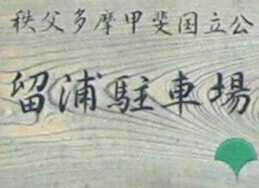 秩父多摩甲斐国立公
留浦駐車場